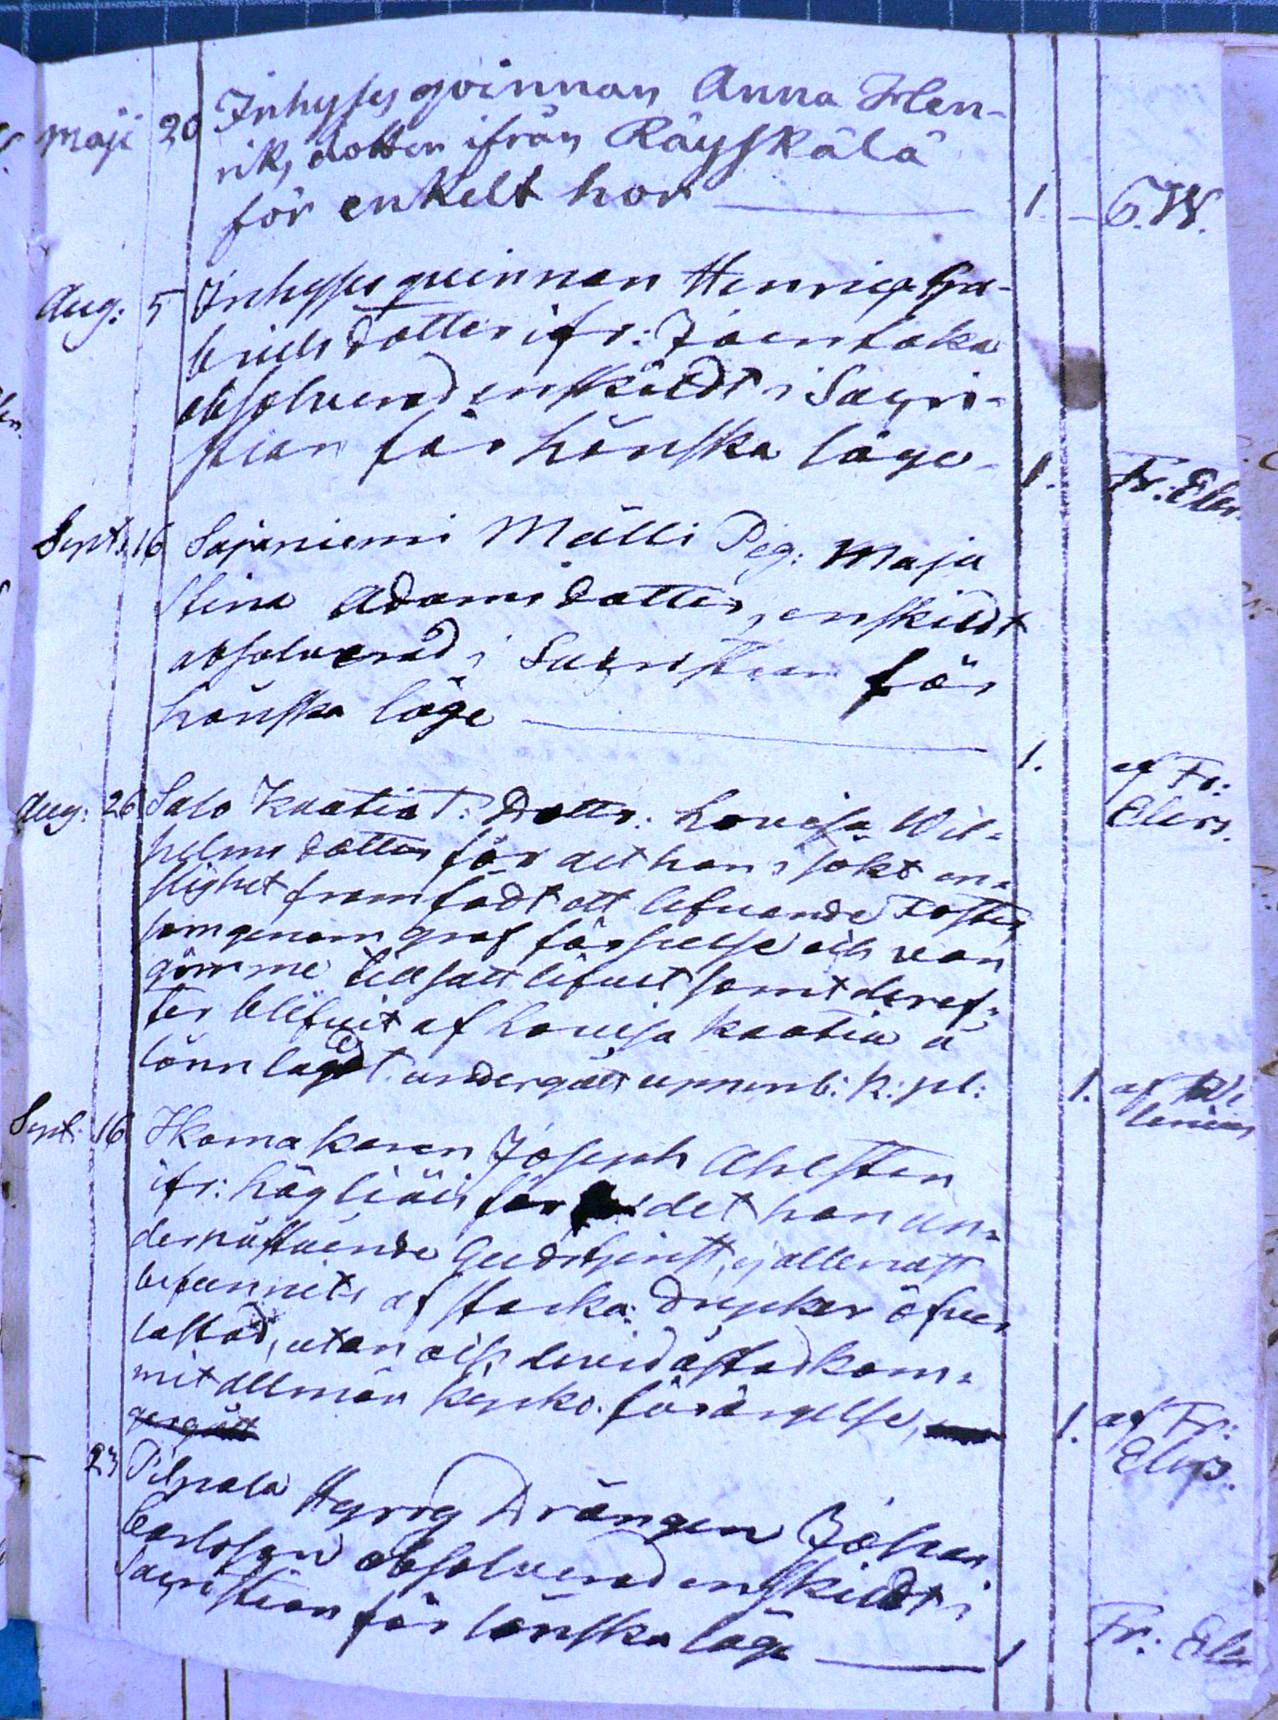 Maji 20 Inhyses qvinnan Anna Hen-
riks dotter ifrån Räyskälä
för enkelt hor 1. G.W.
Aug: 5 Inhyses quinnan Henrica Ga-
briels dotter ifr: Joentaka
absolverad enskildt i Sacri-
stian för lönska läge. 1. Fr: Elers
Sept. 16 Sajaniemi Mälli Pig: Maja
Stina Adamsdotter, enskildt
absolverad i Sacristian för
lönska läge 1. af Fr:
Elers.
Aug: 26 Salo Kaatia T: Dottr: Lovisa Wil-
helms dotter för det hon i sökt en-
slighet framfödt ett lefvande Foster
som genom grof förseelse och van
gömme tillsatt lifvet samt deref-
ter blifvit af Lovisa Kaatia å
lönn lagdt. undergått uppenb: k: pl: 1. af
Sept. 16 Skomakaren Joseph Ahlsten
ifr: Högliäis för det han un-
der påstående Gudstjenst, ej allenast
befunnits af starka drycker öfver
lastad, utan ock dervid åstadkom-
mit allmän kyrko. förargelse, 1. af Fr:
Elers.
23 Pilpala Hyrög Drängen Johan
Carlsson absolverad enskildt i
Sacristian för lönska läge 1 Fr: Eler